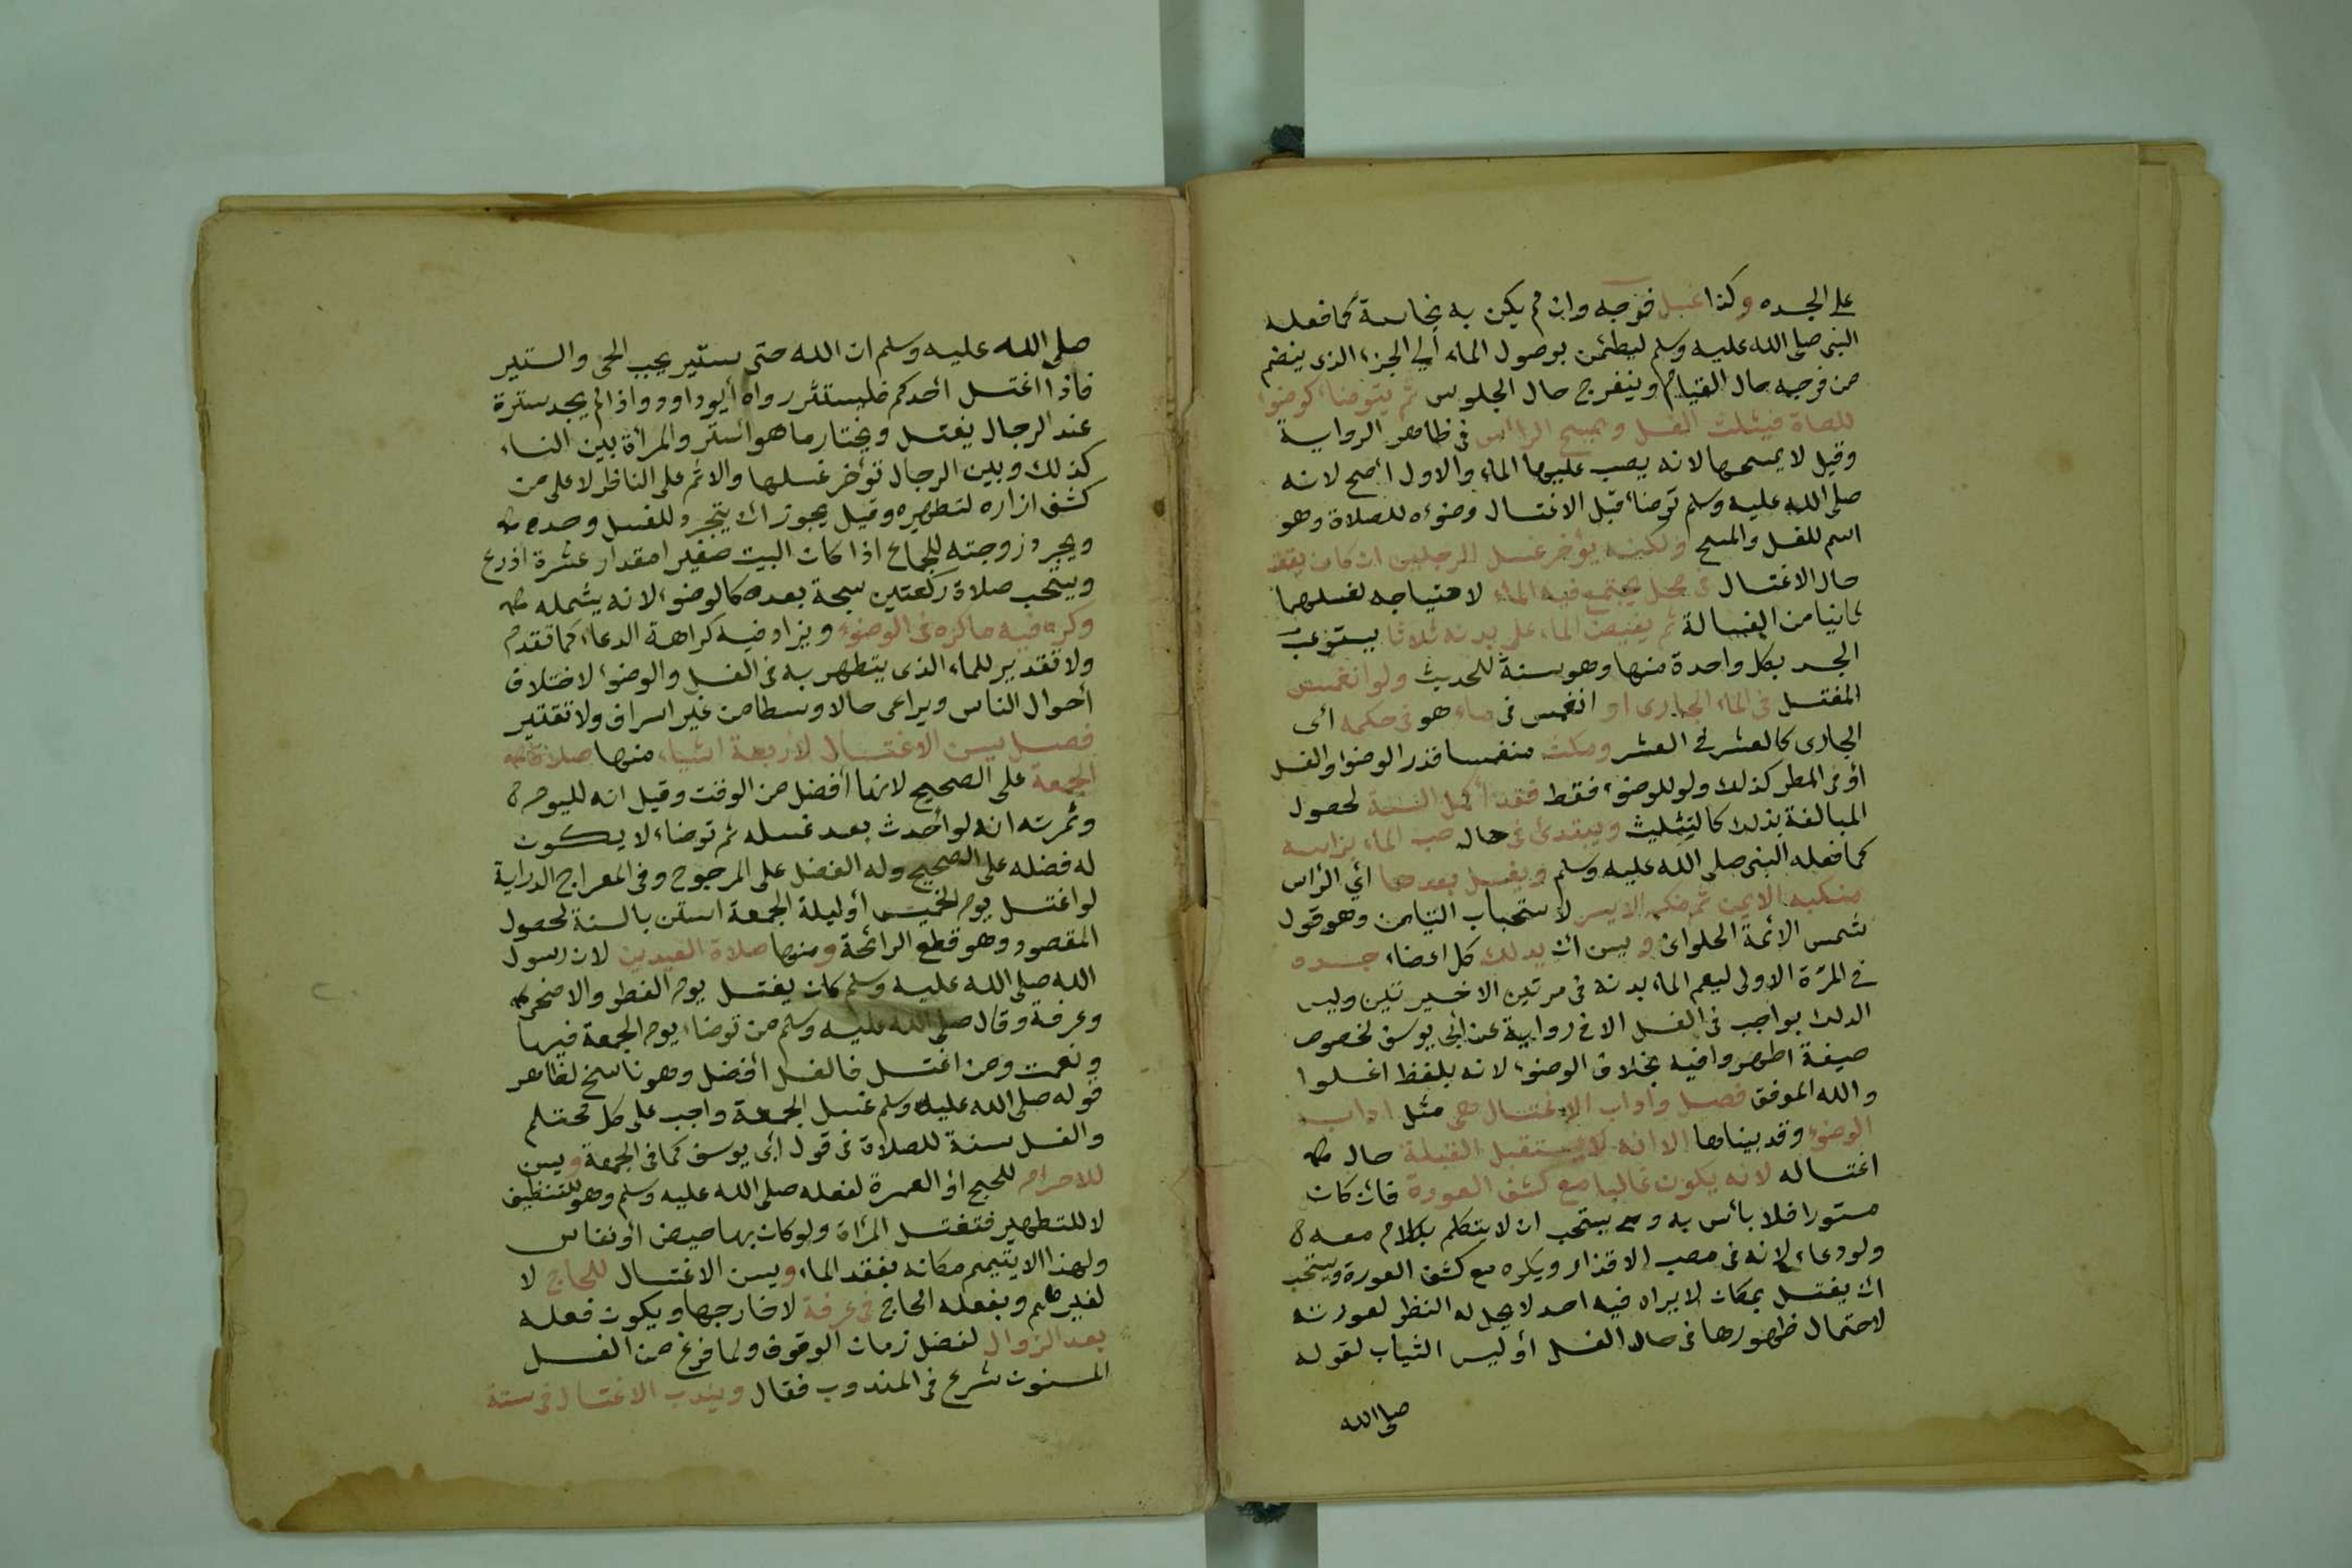 على الجسد وكذا غسل فرجه وان لم يكن به نجاسة كما فعله
النبى صلى الله عليه وسلم ليطمئن بوصول الماء الى الجزء الذى ينضم
من فرجه حال القيام وينفرج حال الجلوس ثم يتوضا كوضوء
للصلاة فيثلث الغسل ويمسح الرأس فى ظاهر الرواية
وقيل لا يمسحها لانه يصب عليها الماء والاول أصح لانه
صلى الله عليه وسلم توضأ قبل الاغتسال وضوءه للصلاة وهو
اسم للغسل والمسح ولكنه يؤخر غسل الرجلين ان كان يقف
حال الاغتسال فى محل يجتمع فيه الماء لاحتياجه لغسلهما
ثانيا من الغسالة ثم يفيض الماء على بدنه ثلاثا يستوعب
الجسد بكل واحدة منها وهو سنة للحديث ولو انغمس
المغتسل فى الماء الجارى او انغمس فى ماء هو فى حكمه أى
الجارى كالعشر فى العشر ومكث منغمسا قدر الوضوء والغسل
أو فى المطر كذلك ولو للوضوء فقط فقد أكمل السنة لحصول
المبالغة بذلك كالتثليث ويبتدئ فى حال صب الماء برأسه
كما فعله النبى صلى الله عليه وسلم ويغسل بعدها أي الرأس
منكبه الايمن ثم منكبه الايسر لاستحباب التيامن وهو قول
شمس الائمة الحلوانى ويسن ان يدلك كل اعضاء جسده
فى المرة الاولى ليعم الماء بدنه فى مرتين الاخيرتين وليس
الدلك بواجب فى الغسل الا فى رواية عن ابي يوسف لخصوص
صيغة اطهروا فيه بخلاف الوضوء لانه بلفظ اغسلوا
والله الموفق فصل وآداب الاغتسال هى مثل اداب
الوضوء وقد بيناها الا انه لا يستقبل القبلة حال
اغتساله لانه يكون غالبا مع كشف العورة فان كان
مستورا فلا بأس به ويستحب ان لا يتكلم بكلام معه
ولو دعاء لانه فى مصب الاقذار ويكره مع كشف العورة ويستحب
ان يغتسل بمكان لا يراه فيه احد لا يحل له النظر لعورته
لاحتمال ظهورها فى حال الغسل أو لبس الثياب لقوله
صلى الله
صلى الله عليه وسلم ان الله حى ستير يحب الحى والستير
فاذا اغتسل أحدكم فليستتر رواه أبو داود واذا لم يجد سترة
عند الرجال يغتسل ويختار ما هو أستر والمرأة بين النساء
كذلك وبين الرجال تؤخر غسلها والاثم على الناظر لا على من
كشف ازاره لتطهيره وقيل يجوز ان يتجرد للغسل وحده
ويجرد زوجته للجماع اذا كان البيت صغيرا مقدار عشرة أذرع
ويستحب صلاة ركعتين سبحة بعده كالوضوء لانه يشمله
وكره فيه ما كره فى الوضوء ويزاد فيه كراهة الدعاء كما تقدم
ولا تقدير للماء الذى يتطهر به فى الغسل والوضوء لاختلاف
أحوال الناس ويراعى حالا وسطا من غير اسراف ولا تقتير
فصل يسن الاغتسال لأربعة اشياء منها صلاة
الجمعة على الصحيح لانها أفضل من الوقت وقيل انه لليوم
وثمرته انه لو أحدث بعد غسله ثم توضاء لا يكون
له فضله على الصحيح وله الفضل على المرجوح وفى المعراج الدراية
لو اغتسل يوم الخميس أو ليلة الجمعة استن بالسنة لحصول
المقصود وهو قطع الرائحة ومنها صلاة العيدين لان رسول
الله صلى الله عليه وسلم كان يغتسل يوم الفطر والاضحى
وعرفة وقال صلى الله عليه وسلم من توضاء يوم الجمعة فبها
ونعمت ومن اغتسل فالغسل أفضل وهو ناسخ لظاهر
قوله صلى الله عليه وسلم غسل الجمعة واجب على كل محتلم
والغسل سنة للصلاة فى قول أبى يوسف كما فى الجمعة ويسن
للاحرام للحج أو العمرة لفعله صلى الله عليه وسلم وهو للتنظيف
لا للتطهير فتغتسل المرأة ولو كان بها حيض أو نفاس
ولهذا لا يتيمم مكانه بفقد الماء ويسن الاغتسال للحاج لا
لغيرهم ويفعله الحاج فى عرفة لا خارجها ويكون فعله
بعد الزوال لفضل زمان الوقوف ولما فرغ من الغسل
المسنون شرع فى المندوب فقال ويندب الاغتسال فى ستة